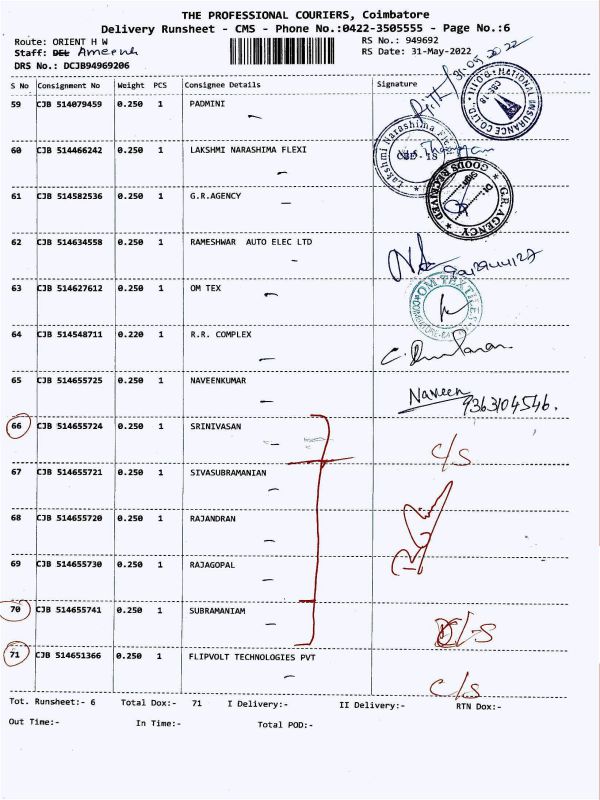 THE PROFESSIONAL COURIERS, Coimbatore
Delivery Runsheet - CMS - Phone No.:0422-3505555 - Page No.:6
Route: ORIENT H W RS No.: 949692
Staff: DEL Ameena RS Date: 31-May-2022
DRS No.: DCJB94969206
S No Consignment No Weight PCS Consignee Details Signature
59 CJB 514079459 0.250 1 PADMINI
31.05.2022
NATIONAL INSURANCE CO.LTD.
60 CJB 514466242 0.250 1 LAKSHMI NARASHIMA FLEXI
Lakshmi Narashima Flexi
CBE-18
61 CJB 514582536 0.250 1 G.R.AGENCY
G.R.AGENCY GOODS RECEIVED
62 CJB 514634558 0.250 1 RAMESHWAR AUTO ELEC LTD
63 CJB 514627612 0.250 1 OM TEX
OM TEXTILES
64 CJB 514548711 0.220 1 R.R. COMPLEX
65 CJB 514655725 0.250 1 NAVEENKUMAR
Naveen 9363104546.
66 CJB 514655724 0.250 1 SRINIVASAN
C/S
67 CJB 514655721 0.250 1 SIVASUBRAMANIAN
68 CJB 514655720 0.250 1 RAJANDRAN
69 CJB 514655730 0.250 1 RAJAGOPAL
70 CJB 514655741 0.250 1 SUBRAMANIAM
71 CJB 514651366 0.250 1 FLIPVOLT TECHNOLOGIES PVT
C/S
Tot. Runsheet:- 6 Total Dox:- 71 I Delivery:- II Delivery:- RTN Dox:-
Out Time:- In Time:- Total POD:-